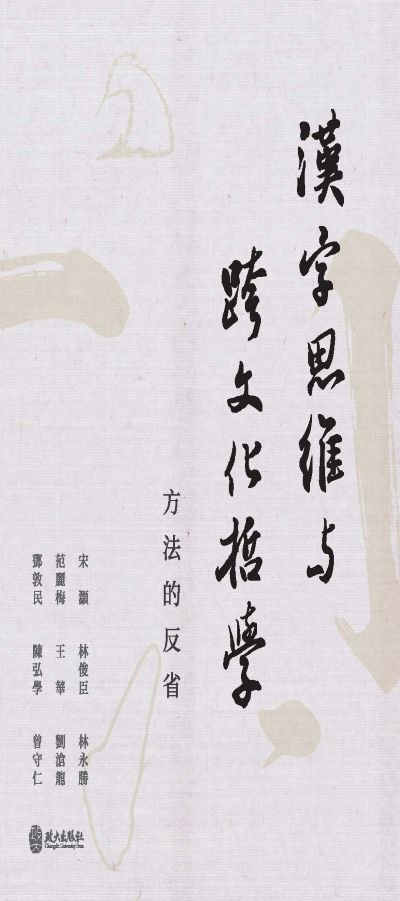 漢字思維與
跨文化哲學
方法的反省
宋灝 林俊臣 林永勝
范麗梅 王華 劉滄龍
鄧敦民 陳弘學 曾守仁
政大出版社
Chengchi University Press